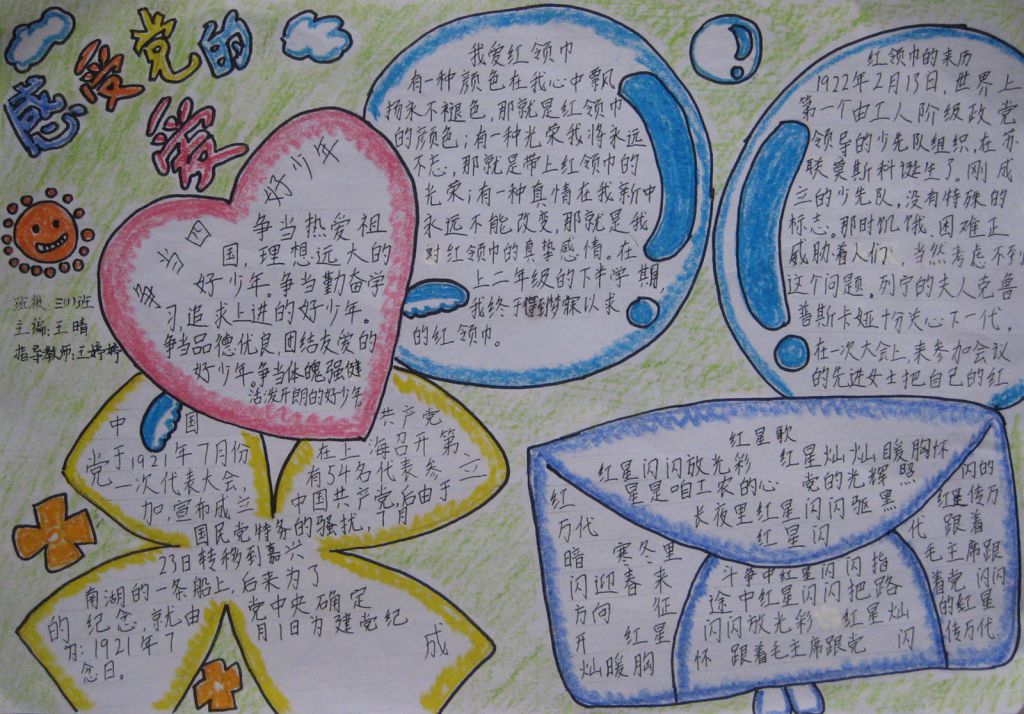 感受党的
爱
班级 三(1)班
主编:王晴
指导教师:王婷婷
争当四好少年
争当热爱祖
国,理想远大的
好少年。争当勤奋学
习,追求上进的好少年。
争当品德优良,团结友爱的
好少年。争当体魄强健、
活泼开朗的好少年。
我爱红领巾
有一种颜色在我心中飘
扬永不褪色,那就是红领巾
的颜色;有一种光荣我将永远
不忘,那就是带上红领巾的
光荣;有一种真情在我新中
永远不能改变,那就是我
对红领巾的真挚感情。在
上二年级的下半学期,
我终于得到梦寐以求
的红领巾。
红领巾的来历
1922年2月13日,世界上
第一个由工人阶级政党
领导的少先队组织,在苏
联莫斯科诞生了。刚成
立的少先队,没有特殊的
标志。那时饥饿、困难正
威胁着人们,当然考虑不到
这个问题。列宁的夫人克鲁
普斯卡娅十分关心下一代,
在一次大会上,来参加会议
的先进女士把自己的红
中国 共产党
党于1921年7月份 在上海召开第
一次代表大会, 有54名代表参
加,宣布成立 中国共产党,后由于 立
国民党特务的骚扰,7月
23日转移到嘉兴
南湖的一条船上,后来为了
的纪念,就由 党中央确定
为:1921年7 月1日为建党纪 成
念日。
红星歌
红星闪闪放光彩 红星灿灿暖胸怀
星是咱工农的心 党的光辉照
长夜里红星闪闪驱黑
红星闪
红
万代
暗 寒冬里
闪迎春来
方向 征
开 红星
灿暖胸
斗争中红星闪闪指
途中红星闪闪把路
闪闪放光彩 红星灿
怀 跟着毛主席跟党 闪
闪的
红星传万
代 跟着
毛主席跟
着党 闪闪
的红星
传万代